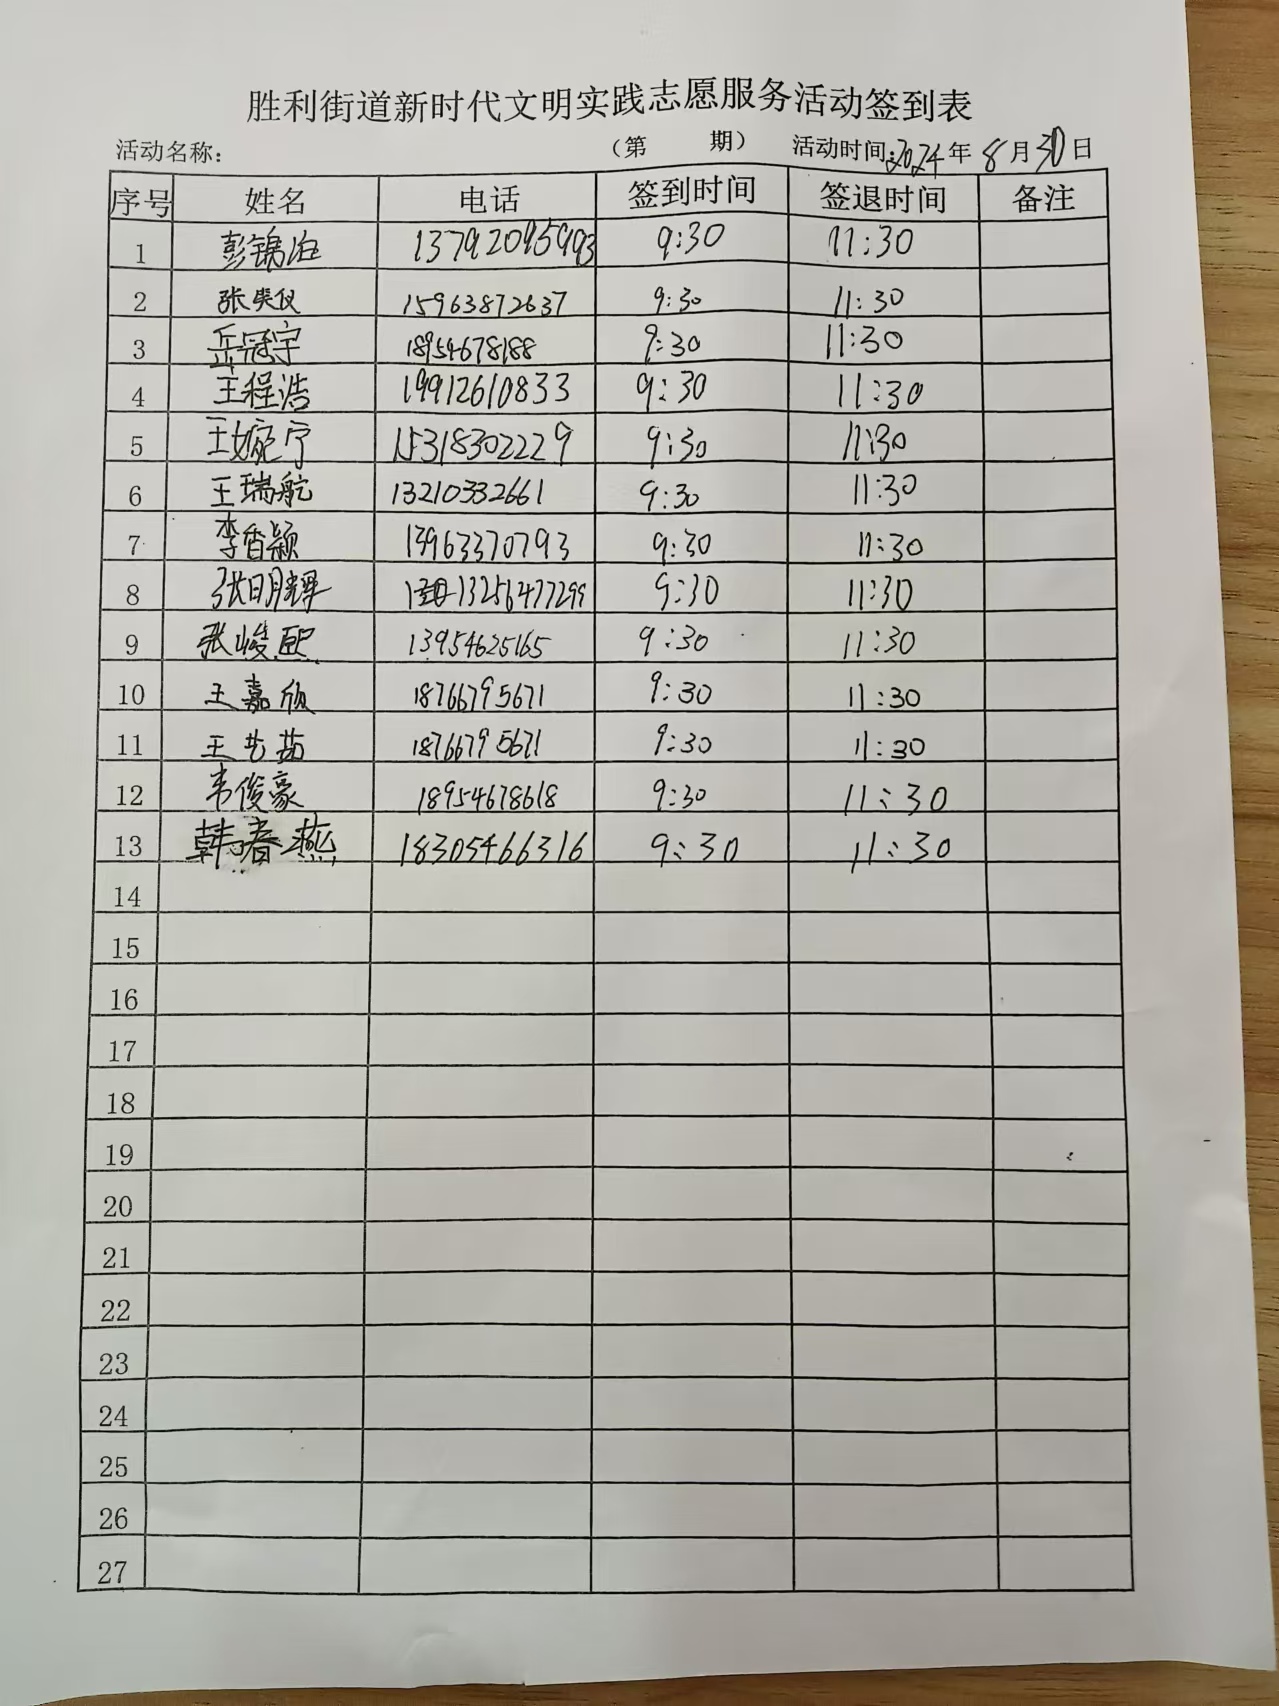 胜利街道新时代文明实践志愿服务活动签到表
活动名称： （第 期） 活动时间:2024年 8月30日
序号 姓名 电话 签到时间 签退时间 备注
1 彭锦 9:30 11:30
2 张奕仪 15963872637 9:30 11:30
3 岳冠宇 18954678188 9:30 11:30
4 王程浩 19912610833 9:30 11:30
5 王婉宁 15318302229 9:30 11:30
6 王瑞航 13210332661 9:30 11:30
7 李香颖 13963370793 9:30 11:30
8 张明辉 13256477299 9:30 11:30
9 张峻熙 13954625165 9:30 11:30
10 王嘉欣 18766795671 9:30 11:30
11 王艺茹 18766795671 9:30 11:30
12 韦俊豪 18954678618 9:30 11:30
13 韩春燕 18305466316 9:30 11:30
14
15
16
17
18
19
20
21
22
23
24
25
26
27